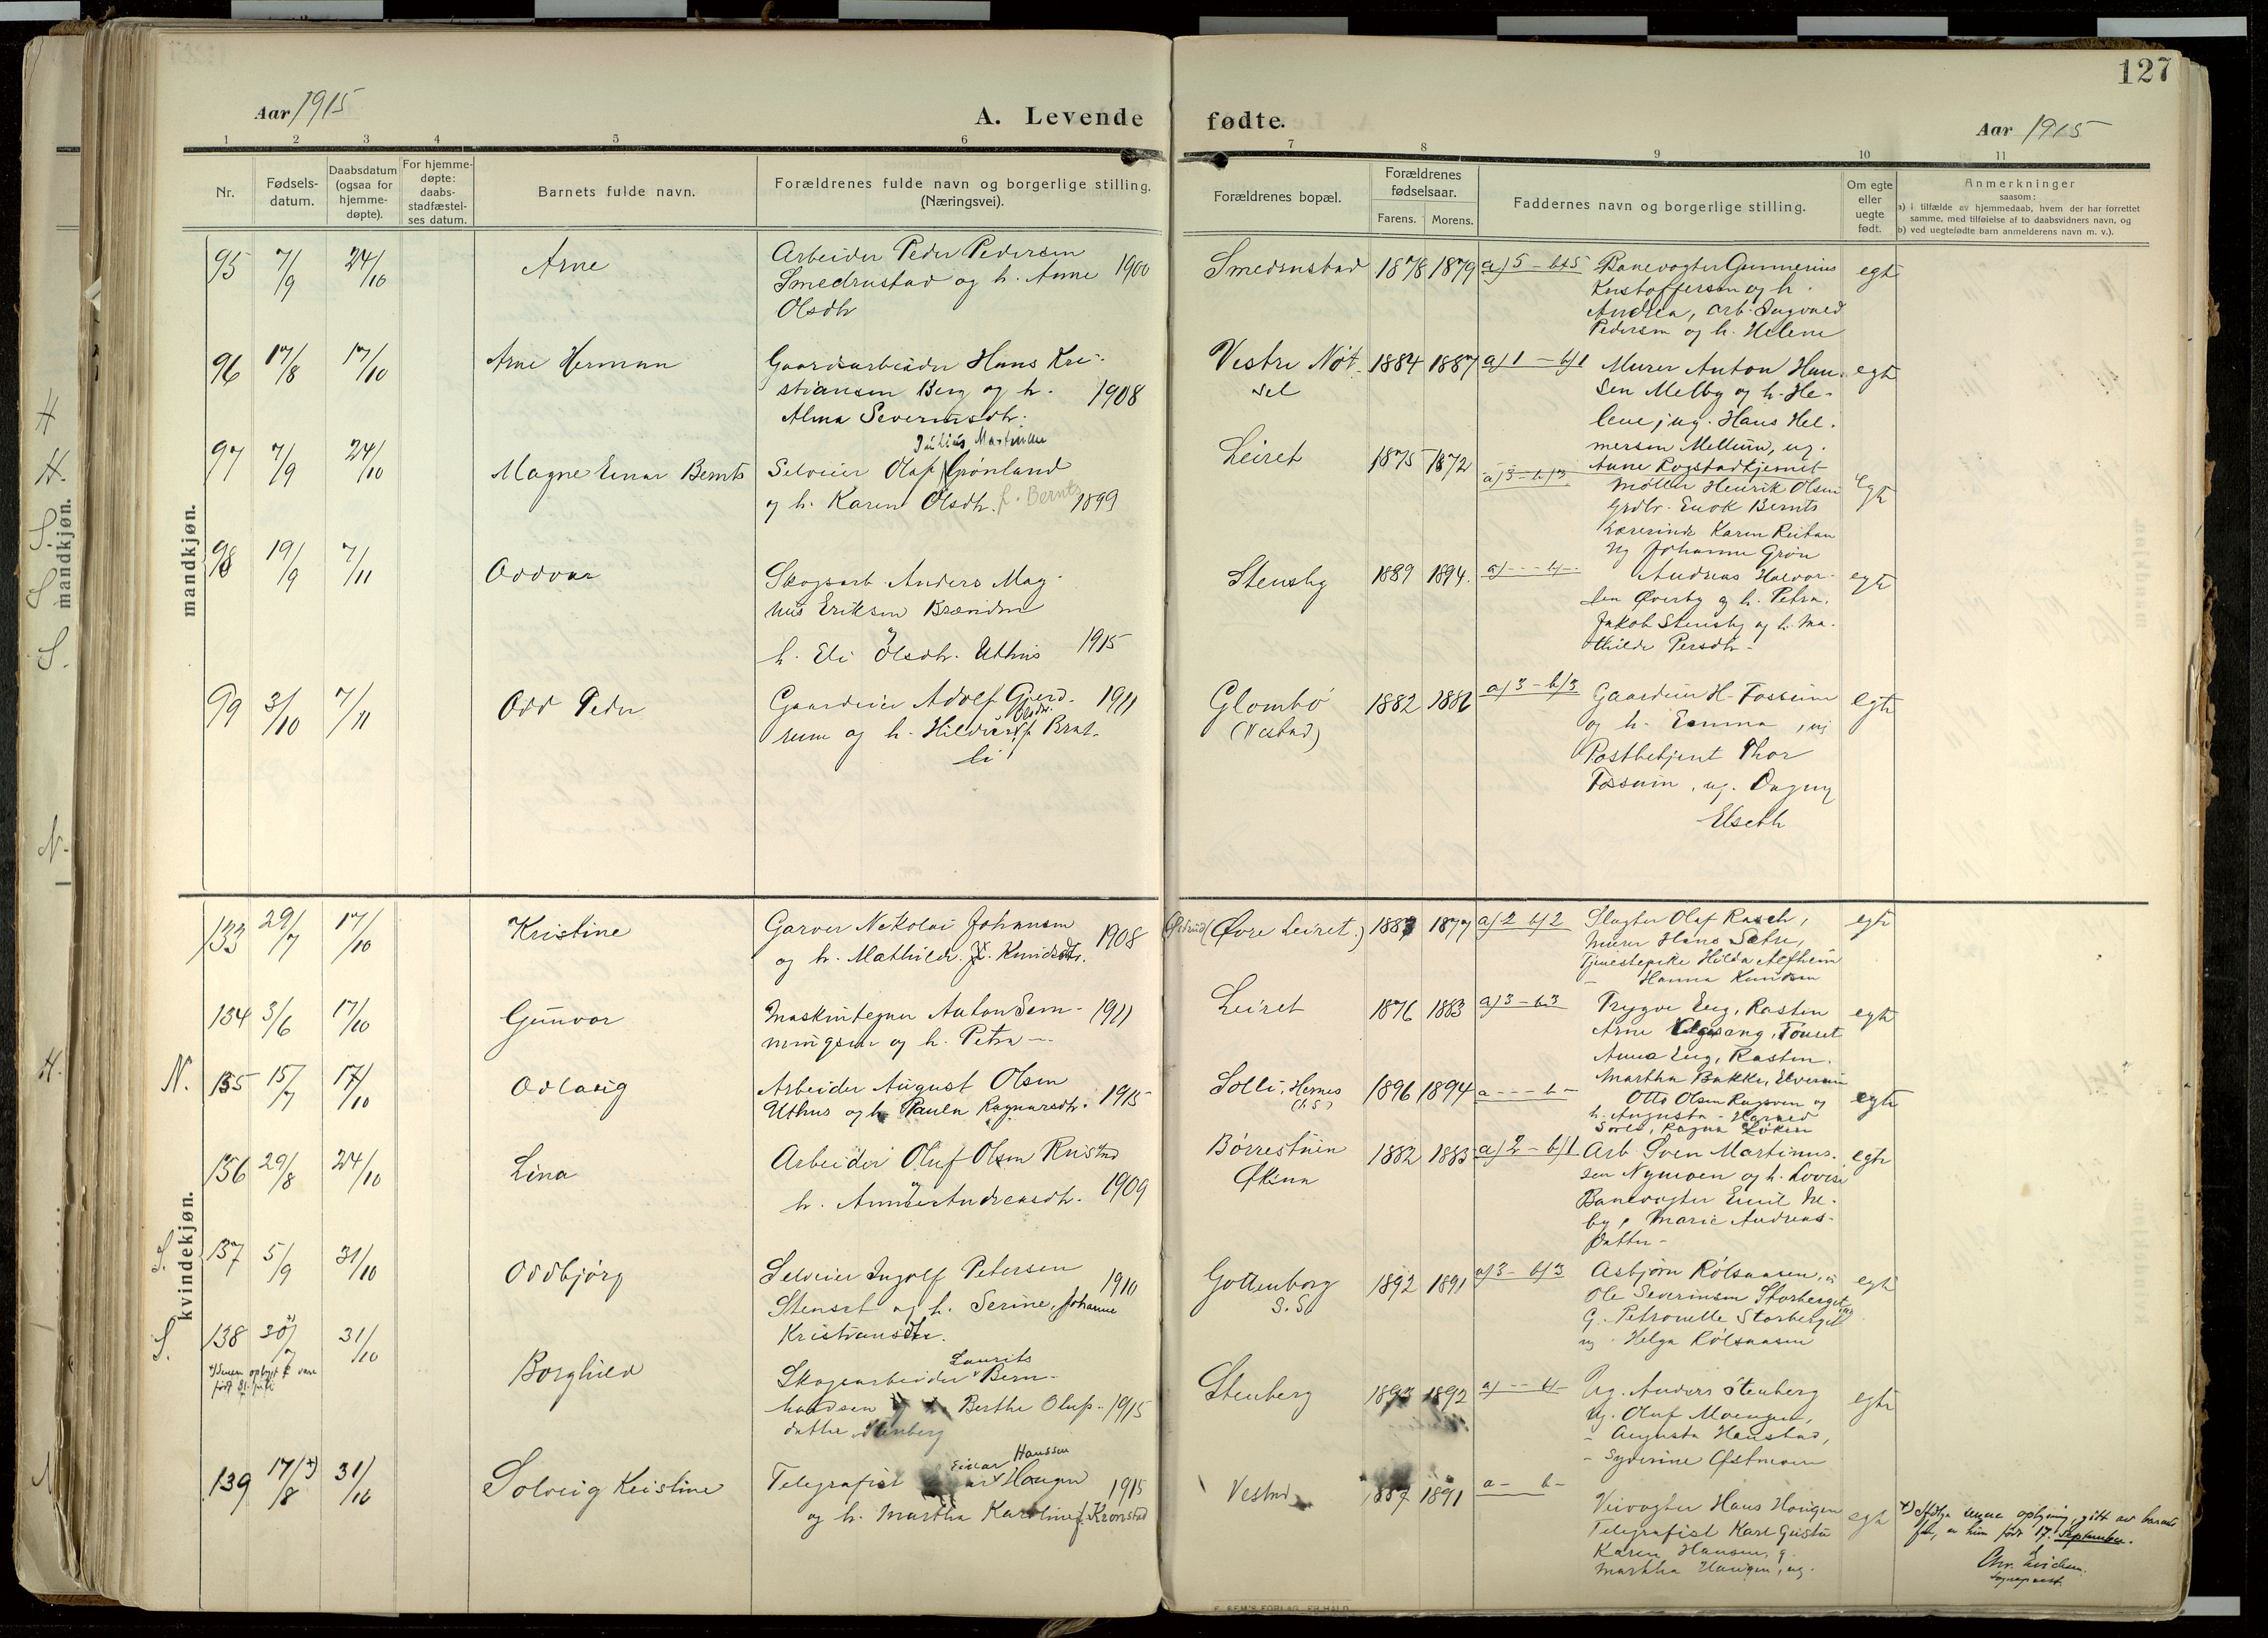 127
Aar 1915
A. Levende
fødte.
Aar 1915
1 2 3 4 5 6 7 8 9 10 11
Nr.
Fødsels-
datum.
Daabsdatum
(ogsaa for
hjemme-
døpte).
For hjemme-
døpte:
daabs-
stadfæstel-
ses datum.
Barnets fulde navn.
Forældrenes fulde navn og borgerlige stilling.
(Næringsvei).
Forældrenes bopæl.
Forældrenes
fødselsaar.
Farens. Morens.
Faddernes navn og borgerlige stilling.
Om egte
eller
uegte
født.
Anmerkninger
saasom:
a) i tilfælde av hjemmedaab, hvem der har forrettet
samme, med tilføielse af to daabsvidners navn, og
b) ved uegtefødte barn anmelderens navn m. v.).
mandkjøn.
mandkjøn.
95 7/9 24/10 Arne
Arbeider Peder Pedersen
Smedrustad og h. Anne 1900
Olsdtr
Smedrustad 1878 1879 a) 5 - b) 5
Banevogter Gunnerius
Kristoffersen og h.
Andrea, arb. Ingvald
Pedersen og h. Helene
egte
96 17/8 17/10 Arne Herman
Gaardsarbeider Hans Kri-
stiansen Berg og h. 1908
Alma Severinsdtr.
Vestre Nøt-
sel
1884 1887 a) 1 - b) 1
Murer Anton Han-
sen Melby og h. He-
lene, ug. Hans Hel-
mersen Mellum, ug.
Anne Rogstadkjernet
egte
97 7/9 24/10 Magne Einar Bernts
Julius Martinius
Selveier Olaf Grønland
og h. Karen Olsdtr. f. Berntz 1899
Leiret 1875 1872 a) 3 - b) 3
Møller Henrik Olsen
Grdbr. Enok Bernts
Lærerinde Karen Reitan
ug Johanne Grøn
egte
98 19/9 7/11 Oddvar
Skogsarb. Anders Mag-
nus Eriksen Brænden
og
h. Eli Olsdtr. Uthus 1915
Stensby 1889 1894. a) - - - b) -
Andreas Halvor-
sen Øverby og h. Petra.
Jakob Stensby og h. Ma-
thilde Persdtr.
egte
99 3/10 7/11 Odd Peder
Gaardeier Adolf Gjerd- 1911
rum og h. Hildur f. Brat-
li
Glombo
(Vestad)
1882 1886 a) 3 - b) 3
Gaardeier H. Fossum
og h. Emma, ug
Postbetjent Thor
Fossum, ug. Dagny
Elseth
egte
kvindekjøn.
133 29/7 17/10 Kristine
Garver Nikolai Johansen
og h. Mathilde Knudsdtr. 1908
(Øvre Leiret.) 1883 1877 a) 2 b) 2
Slagter Olaf Rasch,
Murer Hans Sætre,
Tjenestepike Hilda Alfheim
- Hanna Knudsen
egte
134 3/6 17/10 Gunvor
Maskintegner Anton Sem- 1911
mingsen og h. Petra -
Leiret 1876 1883 a) 3 - b) 3
Trygve Eng, Rasten
Arne Tønset
Anna Eng, Rasten.
Martha Bakke, Elverum
egte
N. 135 15/7 17/10 Odlaug
Arbeider August Olsen
Uthus og h. Paula Ragnarsdtr. 1915
Solli, Hernes
(h. S.)
1896 1894 a - - - b -
Otto Olsen og
h. Augusta - Harald
Sorli, Ragna Løken
egte
136 29/8 24/10 Lina
Arbeider Oluf Olsen Rustad
og
h. Anne Andreasdtr. 1909
Børrestuen
Øksna
1882 1883 a) 2 - b) 1
Arb. Sven Martinus-
sen Nymoen og h. Lovise
Banevogter Emil Ne-
by, Marie Andreas-
datter -
egte
S. 137 5/9 31/10 Oddbjørg
Selveier Ingolf Petersen 1910
Stenset og h. Serine, Johanne
Kristiansdtr.
Gottenborg
S. S.
1892 1891 a) 3 - b) 3
Asbjørn Rølsaasen,
Ole Severinsen Storberget
G. Petronelle Storberget
ug. Helga Rølsaasen
egte
S. 138 30/7 31/10 Borghild
*) Senere oplyst at være
født 31. juli
Laurits
Skogsarbeider Bern-
hardsen Berthe Olufs- 1915
datter Stenberg
Stenberg 1893 1892 a) - - b) -
Ug. Anders Stenberg
ug. Oluf Moengen,
- Augusta Hanstad,
- Syverine Østmoen
egte
139 17/8 *) 31/10 Solveig Kristine
Einar Hanssen
Telegrafist Haugen 1915
og h. Martha Karoline f. Kronstad
Vestad 1887 1891 a - b -
Veivogter Hans Haugen
Telegrafist Karl Gustu
Karen Hansen, g.
Martha Haugen, ug.
egte
*) Ifølge senere oplysning, gitt av barnets
far, er hun født 17. september.
Chr. Erichsen.
Sogneprest.
E. SEM'S FORLAG, FR. HALD